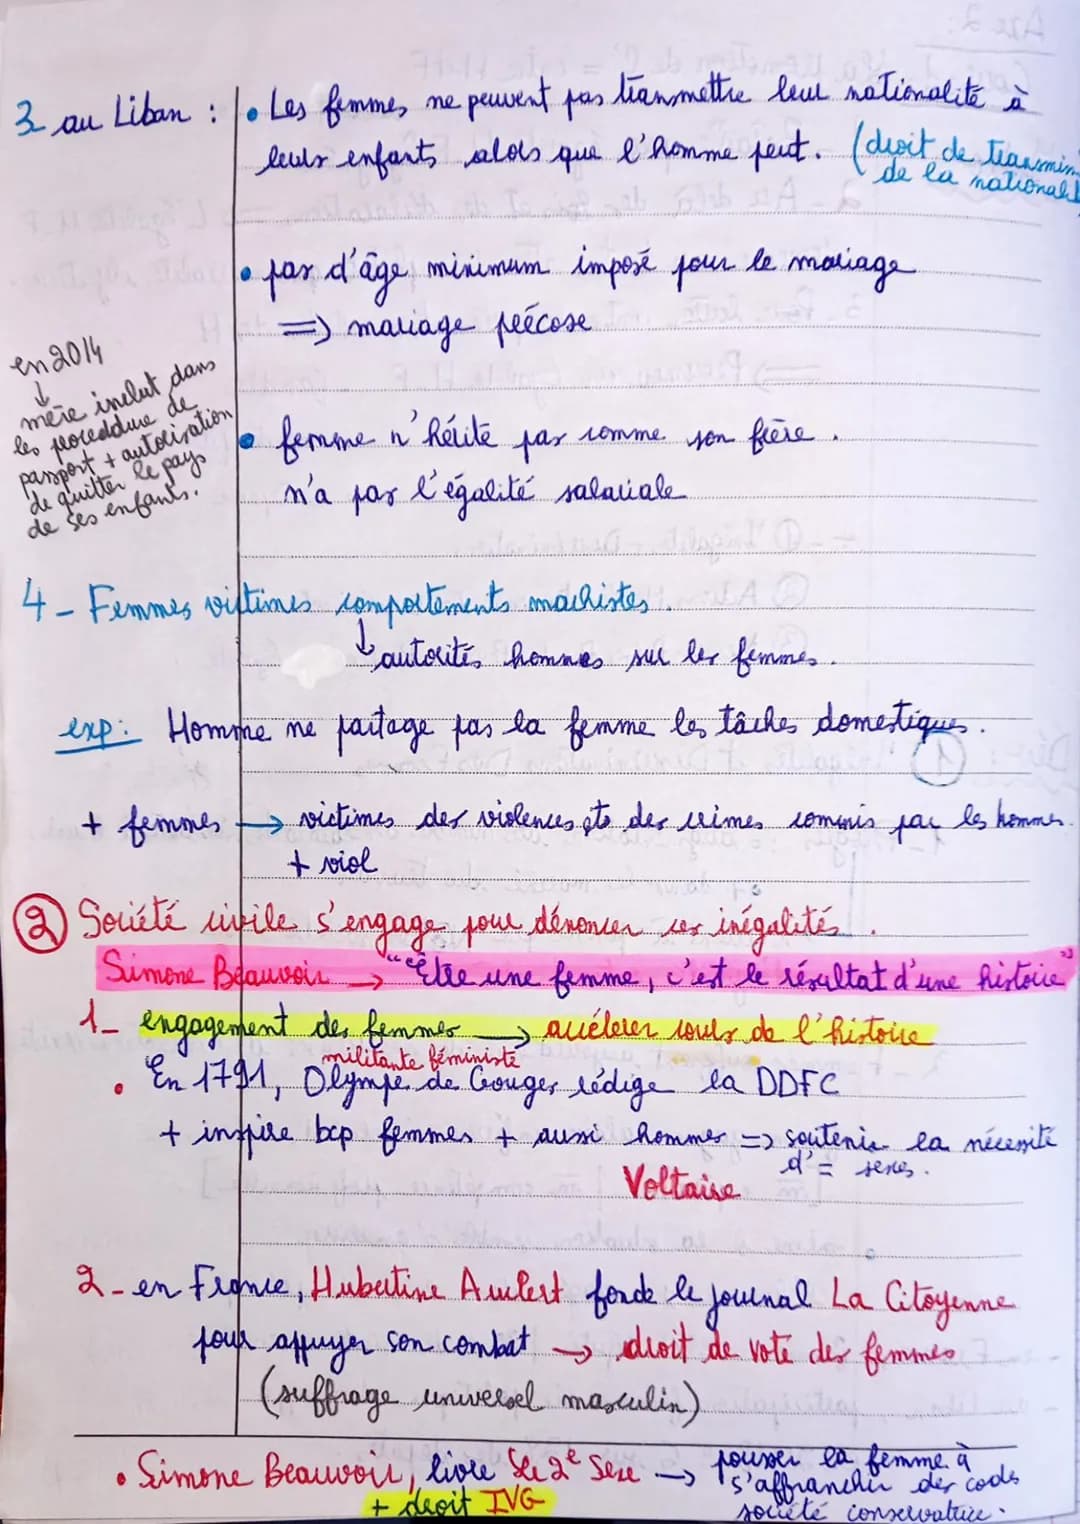 3 au Liban : • Les femmes ne peuvent pas transmettre leur nationalité à
leurs enfants alors que l'homme peut. (droit de transmin
de la national
• pas d'âge minimum imposé pour le mariage
=> mariage préécose
en 2014
↓
mère inclut dans
les proceddure de
passport + autorisation
de quitter le pays
de ses enfants.
• femme n'hérite pas comme son frère.
n'a pas l'égalité salariale
4 - Femmes victimes comportements machistes.
↓ autorités hommes sur les femmes.
exp : Homme ne partage pas la femme les tâches domestiques.
+ femmes → victimes des violences et des crimes commis par les hommes.
+ viol
② Société civile s'engage pour dénoncer ces inégalités.
Simone Beauvoir → "Etre une femme, c'est le résultat d'une histoire"
1- engagement des femmes → accélerer cours de l'histoire
militante féministe
• En 1791, Olympe de Gouges rédige la DDFC
+ inspire bcp femmes + aussi hommes => soutenir la nécessité
d'= sexes.
Voltaise
2 - en France, Hubertine Auclert fonde le journal La Citoyenne
pour appuyer son combat → droit de vote des femmes
(suffrage universel masculin)
• Simone Beauvoir, livre Le 2e Sexe → pousser la femme à
s'affranchir des codes
société conservatrice.
+ droit IVG